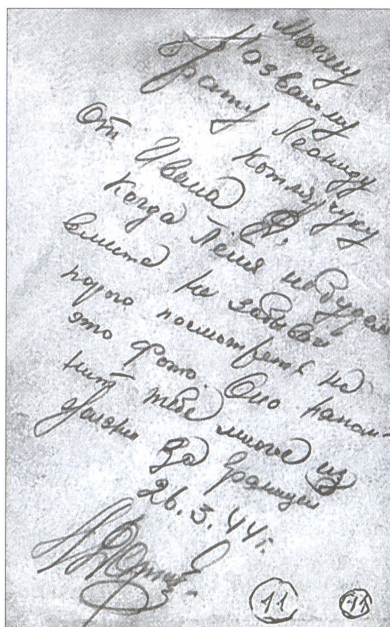 Моему
Названому
брату Леониду
Котлярчуку
От Ивана
Когда Лёня
не забывай
посмотреть на
это фото. Оно напом-
нит тебе многое из
жизни За границей
26.3.44г.
11 11